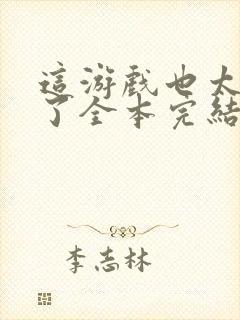 這游戲也太
了全本完結
李志林